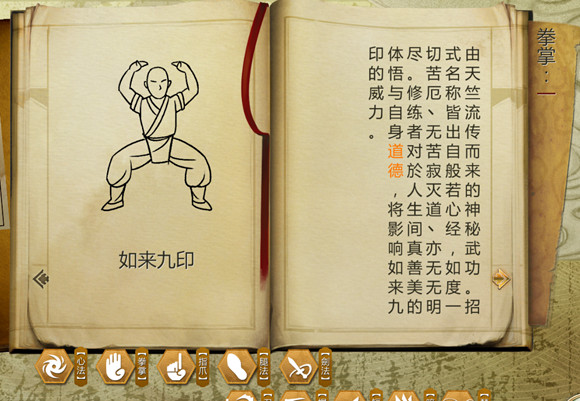 拳掌：一
由天竺流传而来的神秘武功。招
式名称皆出自般若心经，如度一
切苦厄、无苦寂灭道、亦无无明
尽。修练者对於人生间真善美的
体悟与自身道德，将影响如来九
印的威力。
如来九印
【心法】
【拳掌】
【指爪】
【腿法】